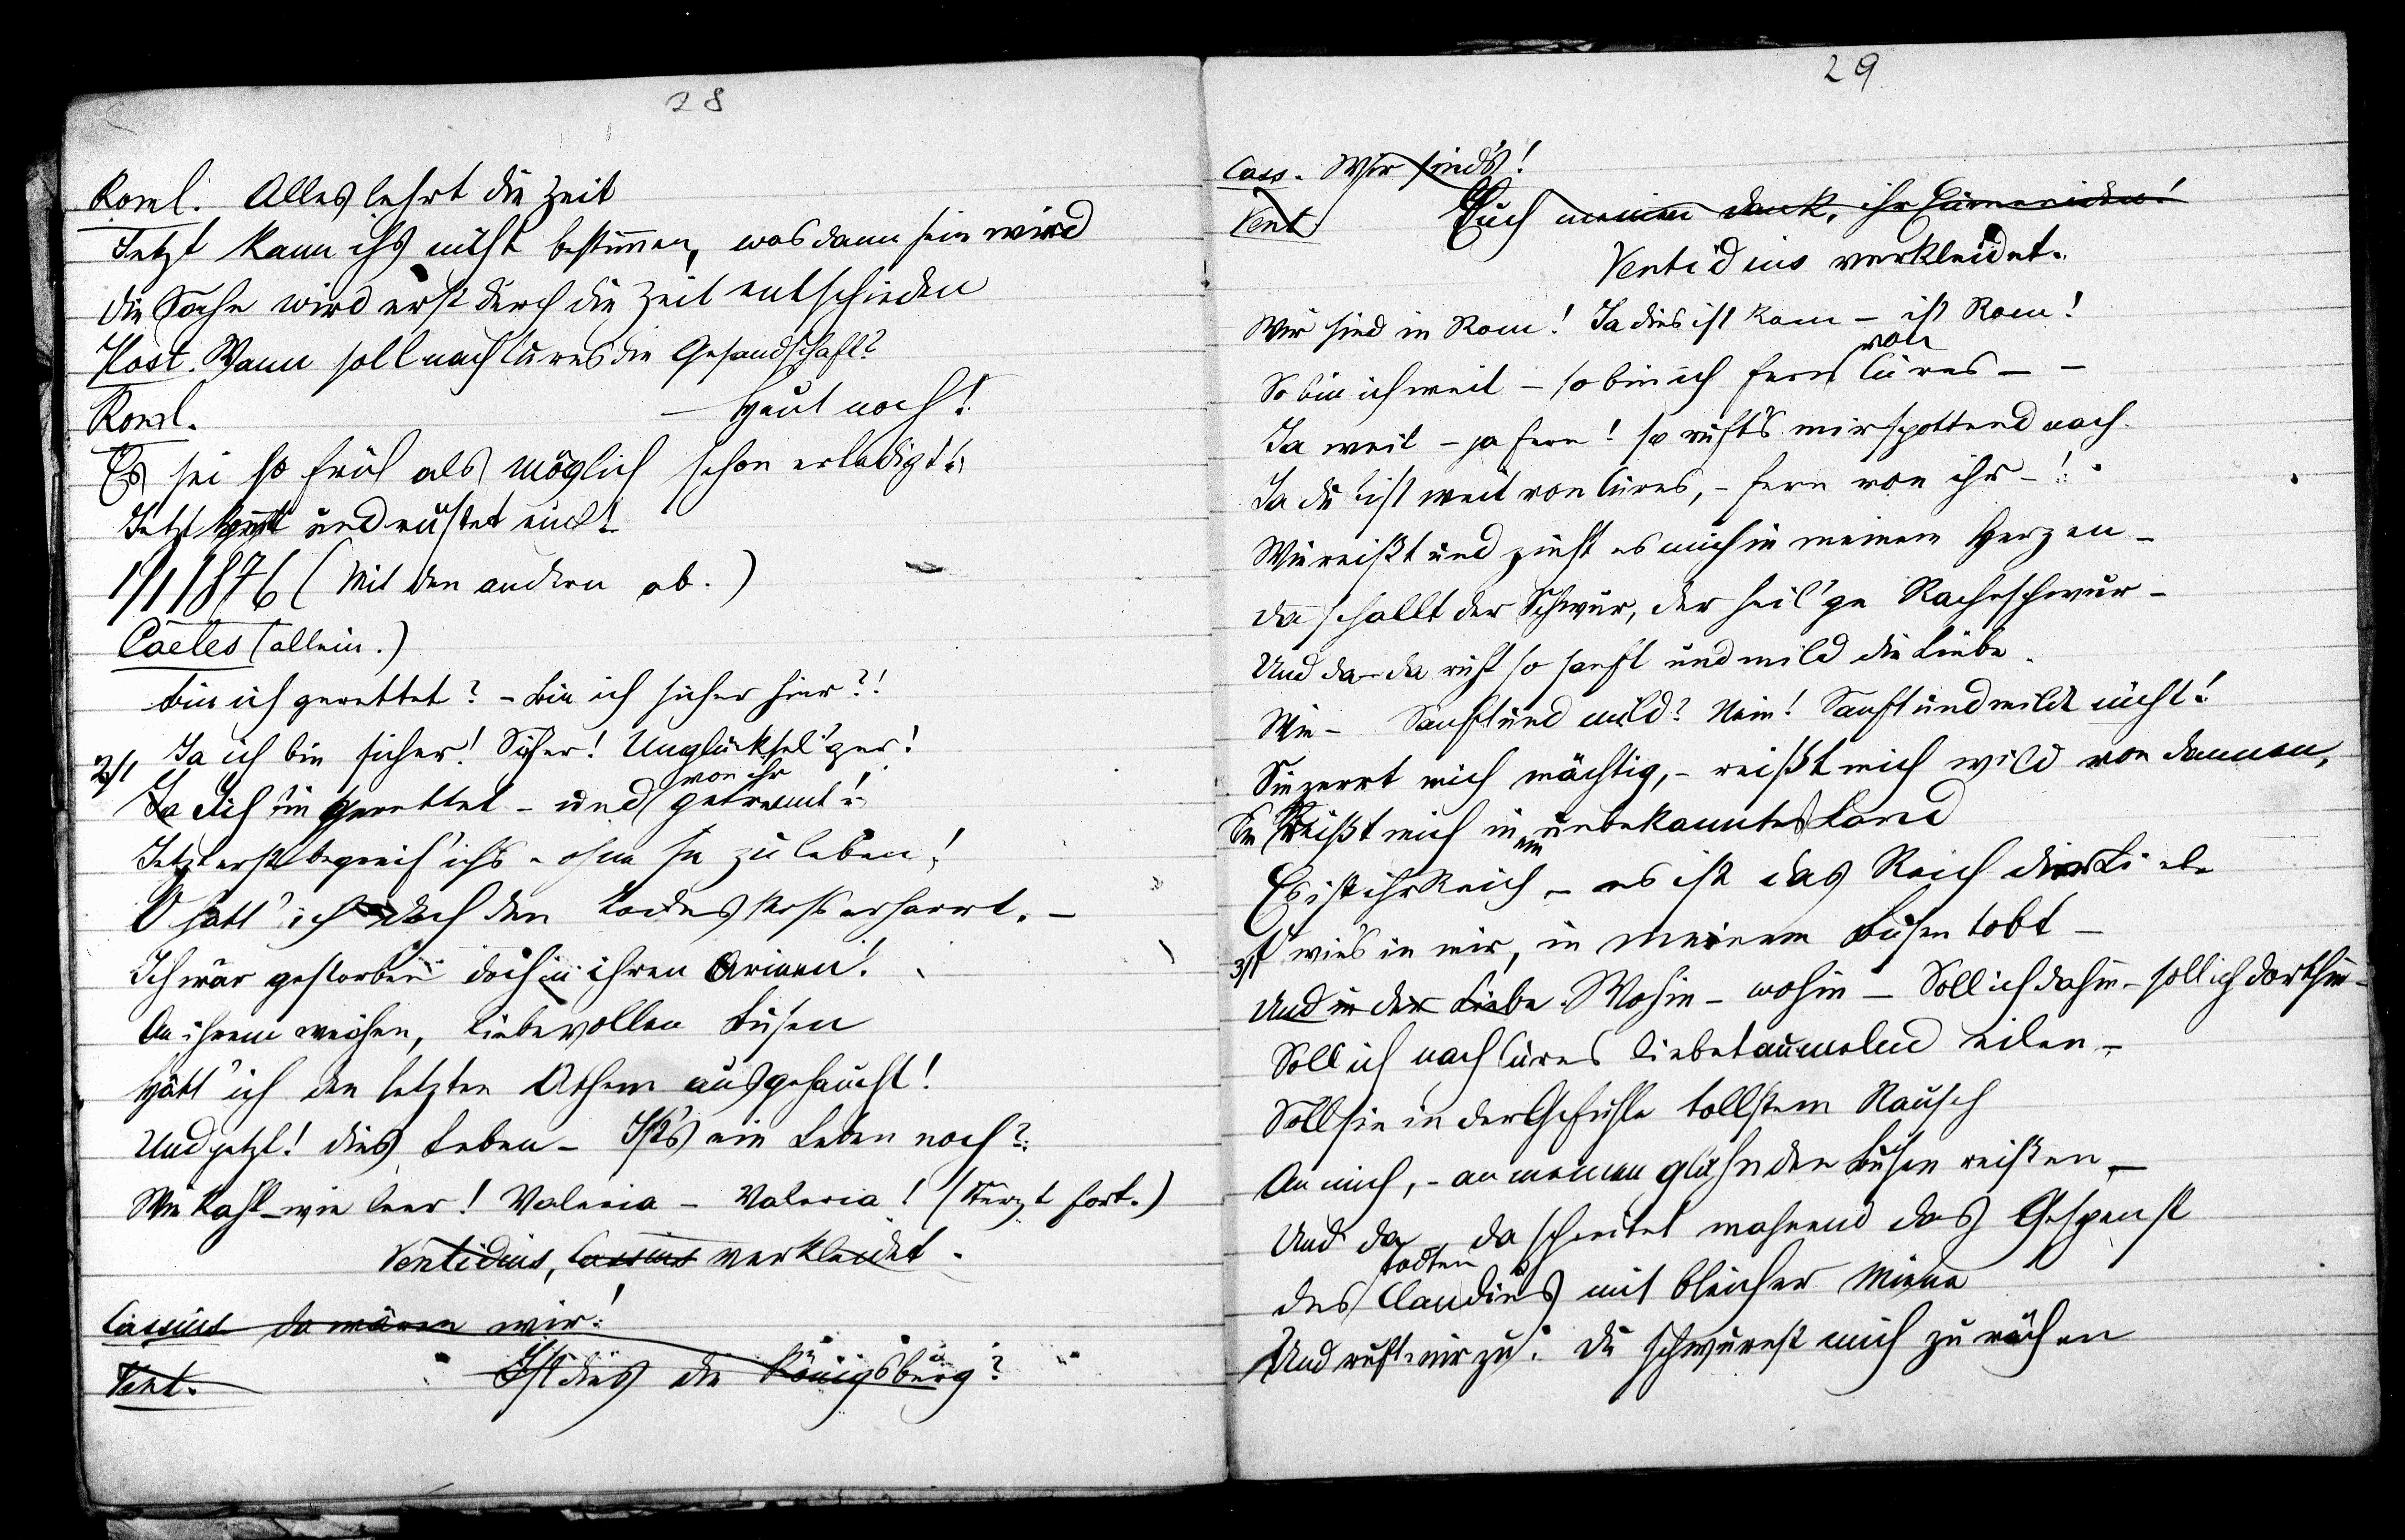 28
Roml. Alles lehrt die Zeit
Jetzt kann ichs nicht bestimmen, was dann sein wird
die Sache wird erst durch die Zeit entschieden
Host. Wann soll nach Cures die Gesandschaft?
Roml. — Heut noch!
Es sei so früh als möglich schon erledigt!
Jetzt und rüstet euch!
1/1 1876 (Mit den andern ab.)
Caeles (allein.)
bin ich gerettet? – bin ich sicher hier?!
Ja ich bin sicher! Sicher! Unglücksel'ger!
2/1 Ja ich bin gerettet – und von ihr getrennt!
Jetzt erst begreif' ichs – ohne sie zu leben!
O hätt' ich doch den Todesstoß erharrt. –
Ich wär gestorben doch in ihren Armen!
An ihrem weichen, liebevollen Busen
Hätt' ich den letzten Athem ausgehaucht!
Und jetzt! dies Leben – Ist's ein Leben noch?
Wie kahl – wie leer! Valeria – Valeria! (stürzt fort.)
Ventidius, Cassius verkleidet.
Cassius da wären wir!
Vent. Ist dies die Königsburg?
29
Cass. Wir sind's!
Vent Euch meinen dank, ihr Eumeniden!
Ventidius verkleidet.
Wir sind in Rom! Ja dies ist Rom – ist Rom!
So bin ich weit – so bin ich fern von Cures – –
Ja weit – ja fern! so ruft's mir spottend nach.
Ja du bist weit von Cures, – fern von ihr – !
Wie reißt und zieht es mich in meinem Herzen –
da schallt der Schwur, der heil'ge Racheschwur –
Und da – da ruft so sanft und mild die Liebe.
Wie – Sanft und mild? Nein! Sanft und milde nicht!
Sie zerrt mich mächtig, – reißt mich wild von dannen,
Sie reißt mich in ein unbekanntes Land
Es ist ihr Reich – es ist das Reich der Liebe
3/1 wie's in mir, in meinem Busen tobt –
Und in der Liebe. Wohin – wohin – Soll ich dahin – soll ich dorthin –
Soll ich nach Cures liebetaumelnd eilen –
Soll sie in der Gefühle tollstem Rausch
An mich, – an meinen glühnden Busen reißen, –
Und da – da schreitet mahnend das Gespenst
des todten Claudius mit bleicher Miene
Und ruft mir zu: du schwurest mich zu rächen